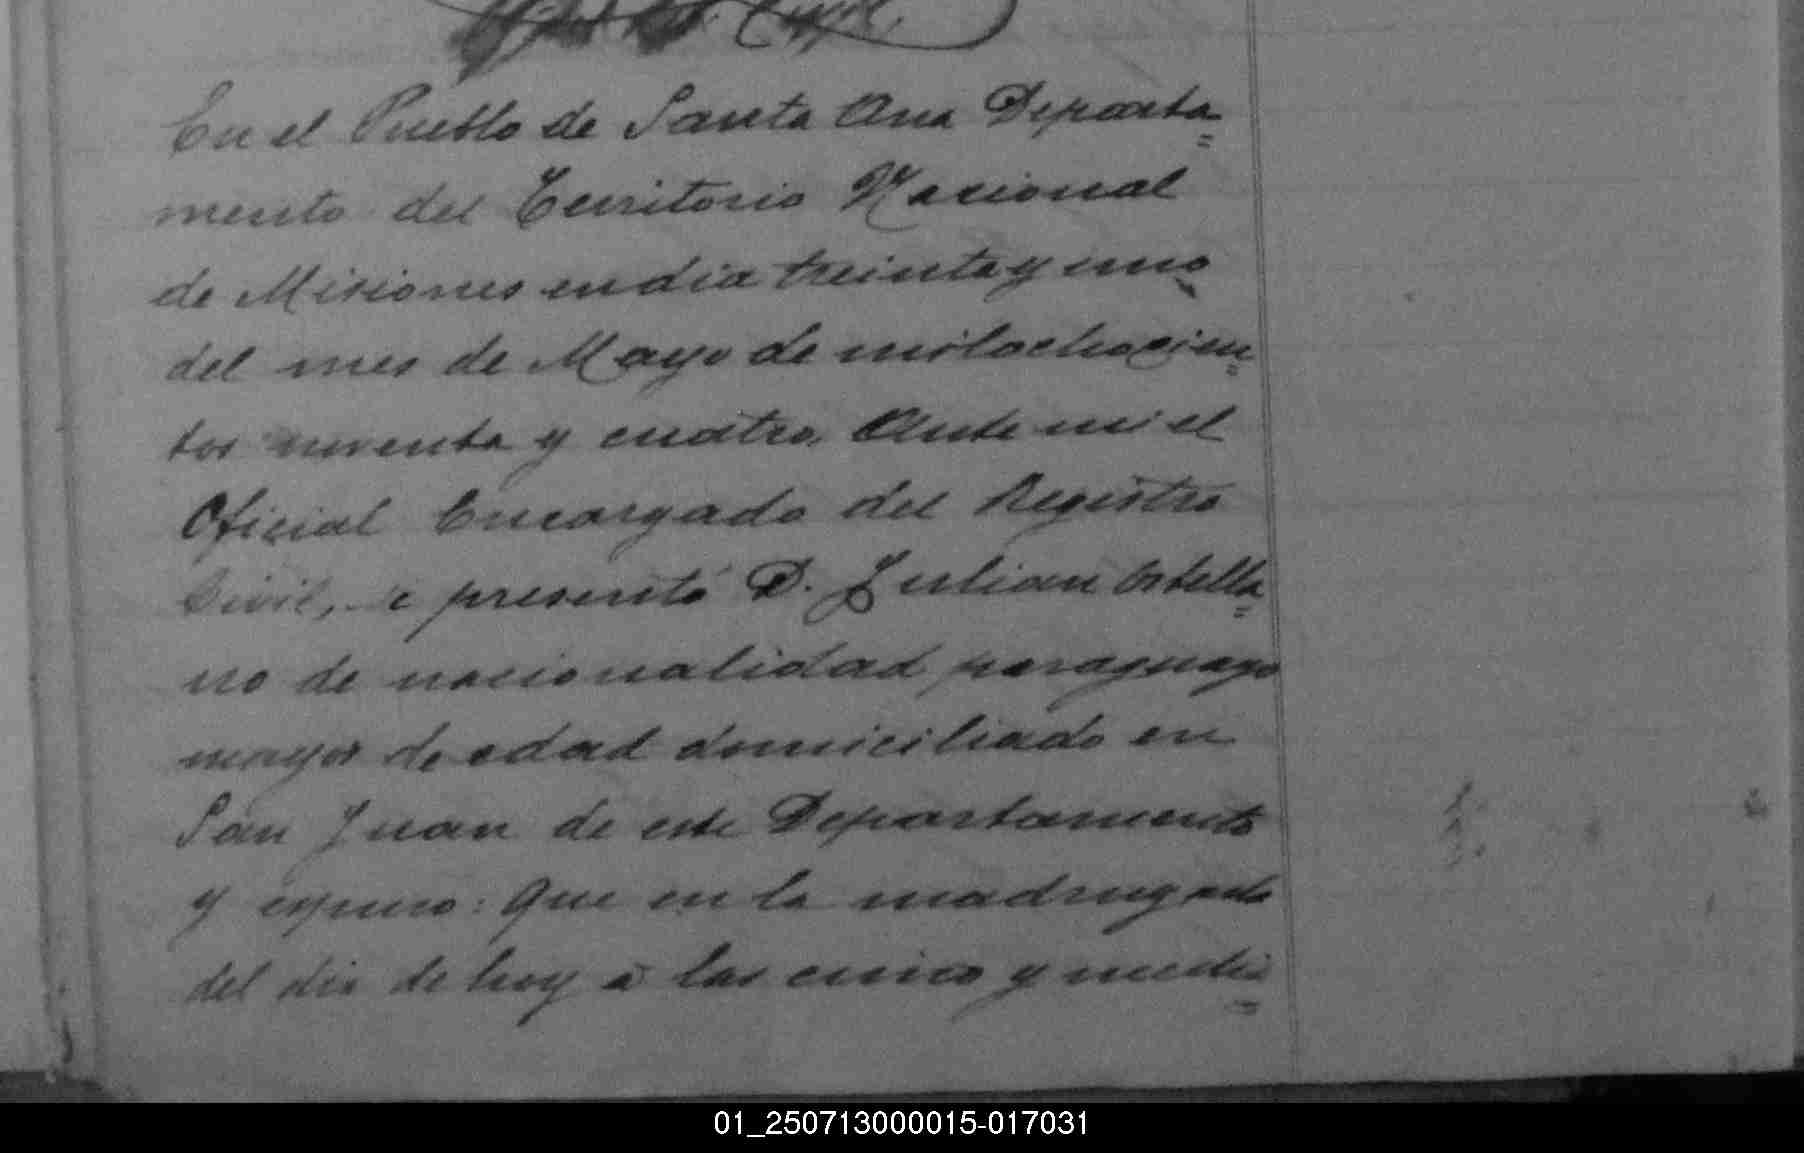 Civil,
En el Pueblo de Santa Ana Departa=
mento del Territorio Nacional
de Misiones en dia treinta y uno
del mes de Mayo de mil ochocien=
tos noventa y cuatro. Ante mi el
Oficial Encargado del Registro
Civil, se presentó D. Julian Orbella=
no de nacionalidad paraguayo
mayor de edad domiciliado en
San Juan de este Departamento
y expuso: Que en la madrugada
del dia de hoy á las cinco y media=
01_250713000015-017031